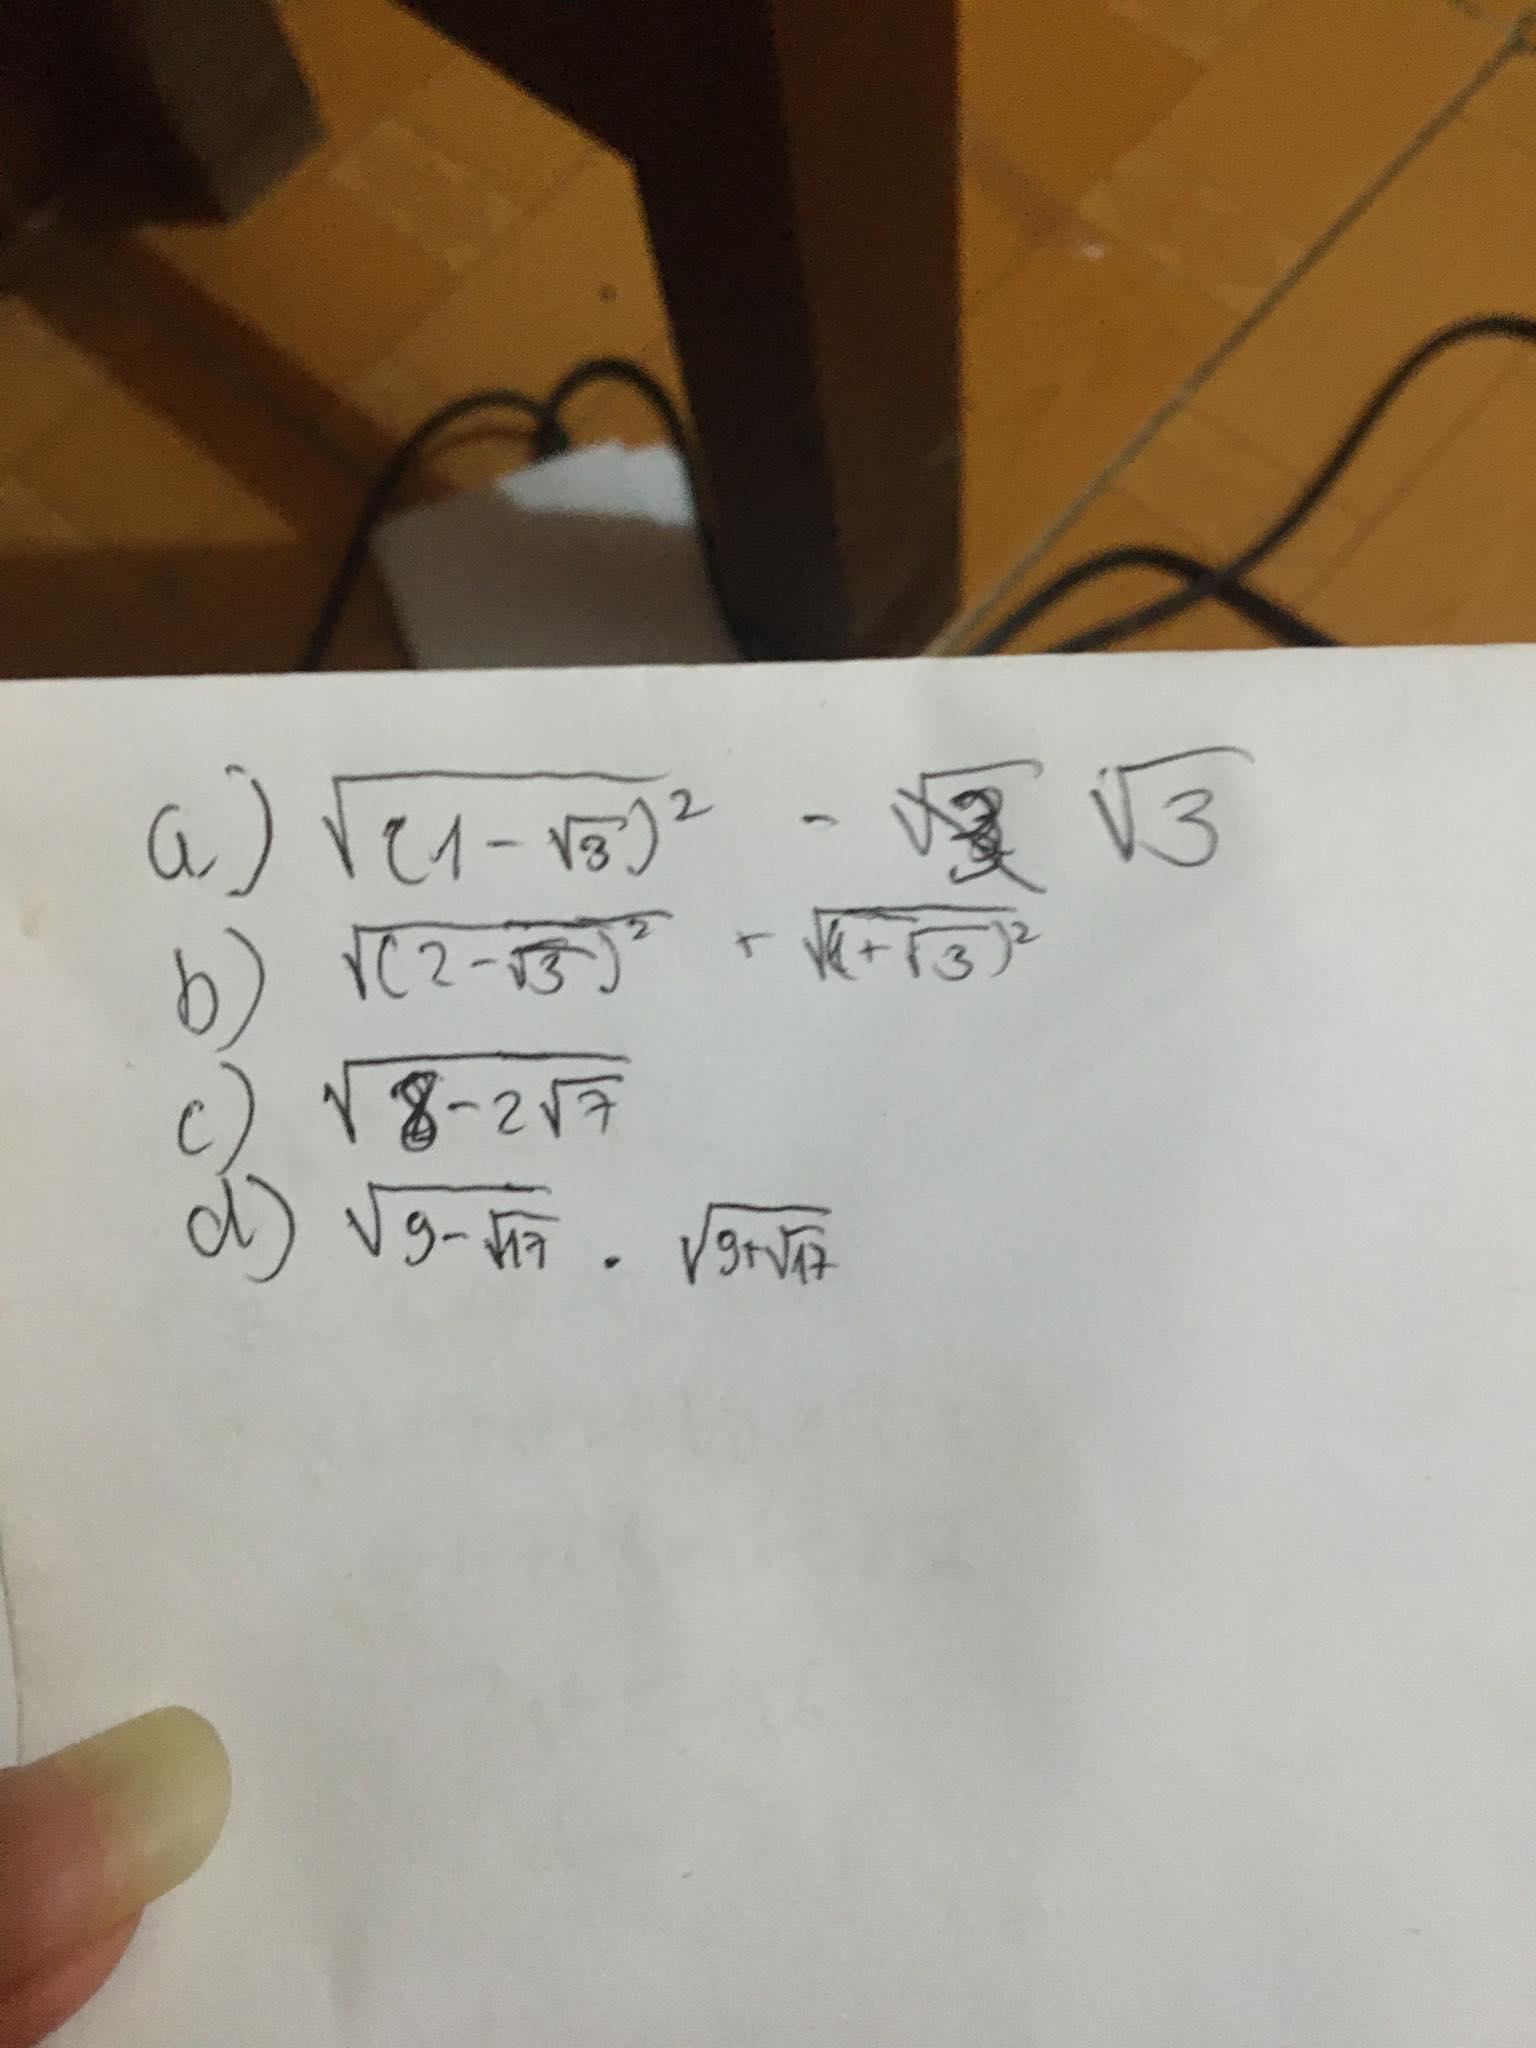 a) √(1-√3)² - √3
b) √(2-√3)² + √(1+√3)²
c) √8-2√7
d) √9-√17 . √9+√17